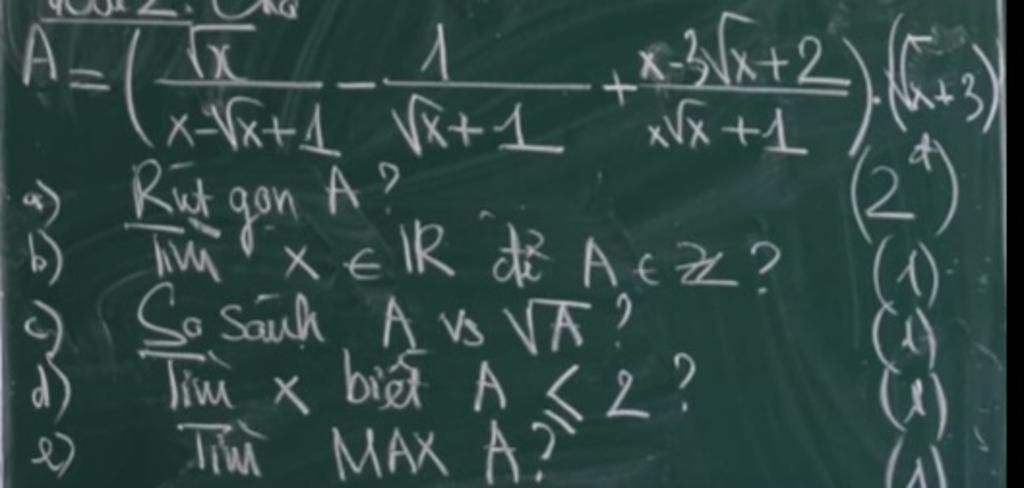 Bài 2: Cho
A = ( √x / (x-√x+1) - 1 / (√x+1) + (x-3√x+2) / (x√x+1) ) . (√x+3)
a) Rút gọn A? (2đ)
b) Tìm x ∈ ℝ để A ∈ ℤ? (1)
c) So sánh A vs √A? (1)
d) Tìm x biết A ≤ 2? (1)
e) Tìm MAX A? (1)